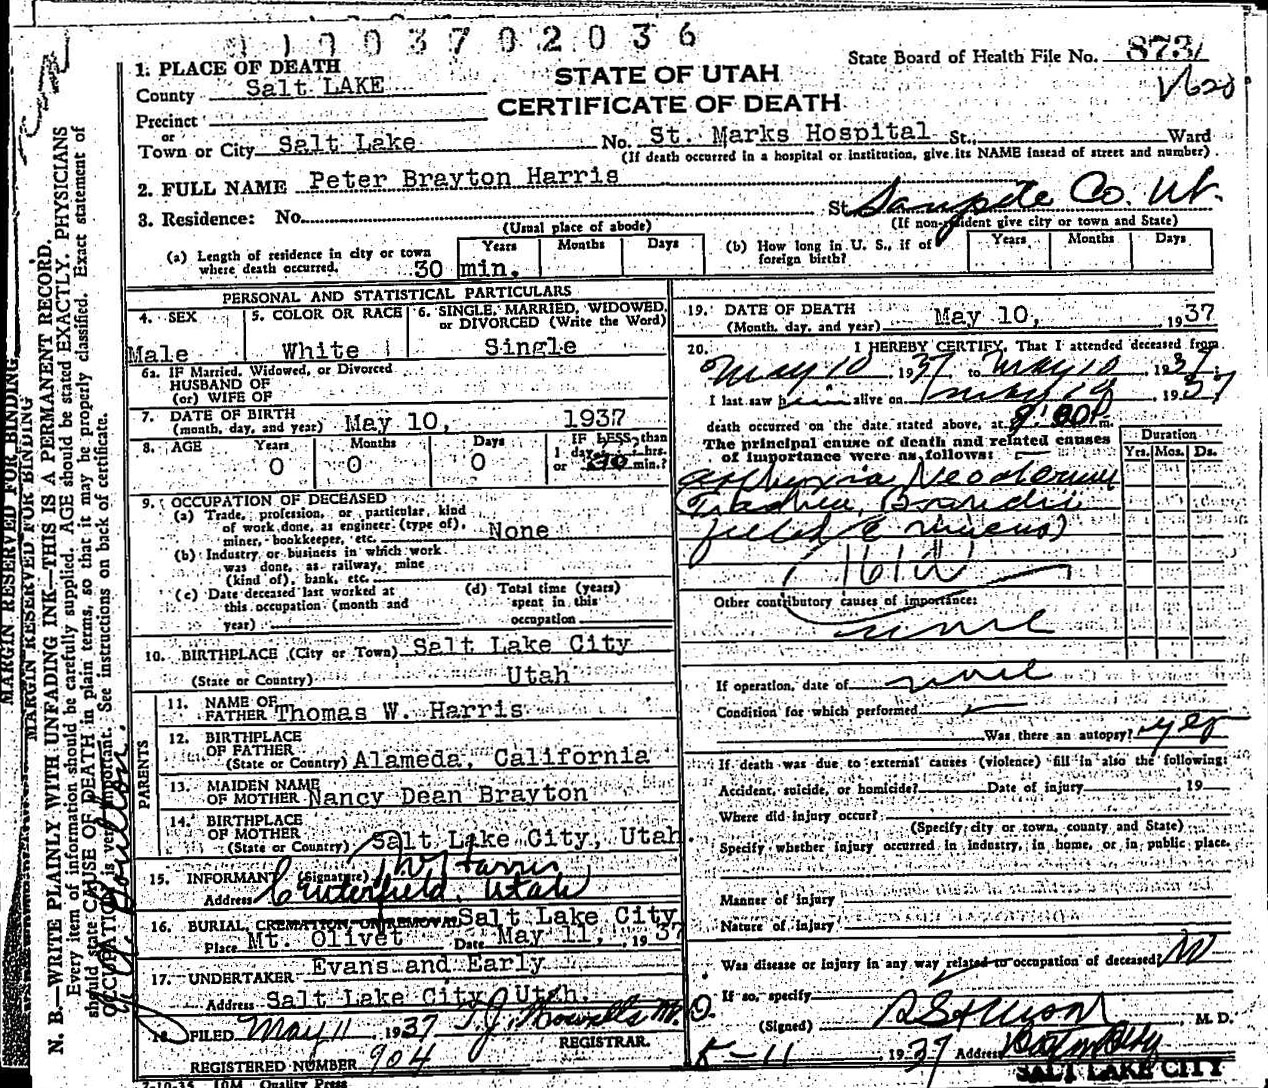 1003702036
State Board of Health File No. 873
1. PLACE OF DEATH
STATE OF UTAH
County Salt LAKE
CERTIFICATE OF DEATH
Precinct
or
Town or City Salt Lake No. St. Marks Hospital St., Ward
(If death occurred in a hospital or institution, give its NAME instead of street and number)
2. FULL NAME Peter Brayton Harris
3. Residence: No. St. Sanpete Co. Ut.
(Usual place of abode) (If non-resident give city or town and State)
(a) Length of residence in city or town where death occurred. Years Months Days
30 min.
(b) How long in U. S., if of foreign birth? Years Months Days
PERSONAL AND STATISTICAL PARTICULARS
4. SEX
Male
5. COLOR OR RACE
White
6. SINGLE, MARRIED, WIDOWED, or DIVORCED (Write the Word)
Single
6a. IF Married, Widowed, or Divorced
HUSBAND OF
(or) WIFE OF
7. DATE OF BIRTH
(month, day, and year) May 10, 1937
8. AGE Years Months Days IF LESS than
1 day, hrs.
0 0 0 or 30 min.?
9. OCCUPATION OF DECEASED
(a) Trade, profession, or particular, kind
of work done, as engineer (type of),
miner, bookkeeper, etc. None
(b) Industry or business in which work
was done, as railway, mine
(kind of), bank, etc.
(c) Date deceased last worked at
this occupation (month and
year)
(d) Total time (years)
spent in this
occupation
10. BIRTHPLACE (City or Town) Salt Lake City
(State or Country) Utah
PARENTS
11. NAME OF
FATHER Thomas W. Harris
12. BIRTHPLACE
OF FATHER
(State or Country) Alameda, California
13. MAIDEN NAME
OF MOTHER Nancy Dean Brayton
14. BIRTHPLACE
OF MOTHER
(State or Country) Salt Lake City, Utah
15. INFORMANT (Signature) T W Harris
Address Centerfield, Utah
16. BURIAL, CREMATION, OR REMOVAL Salt Lake City
Place Mt. Olivet Date May 11, 1937
17. UNDERTAKER Evans and Early
Address Salt Lake City, Utah.
18. FILED May 11 1937 T. J. Howells M. D.
REGISTRAR.
REGISTERED NUMBER 904
7-10-35 10M Quality Press
19. DATE OF DEATH
(Month, day, and year) May 10, 1937
20. I HEREBY CERTIFY, That I attended deceased from
May 10 1937 to May 10 1937
I last saw him alive on May 10 1937
death occurred on the date stated above, at m.
The principal cause of death and related causes
of importance were as follows:
Duration
Yrs. Mos. Ds.
Asphyxia Neodorum
Trachea, Bronchi
filled c mucus)
Other contributory causes of importance:
none
If operation, date of none
Condition for which performed
Was there an autopsy? yes
If death was due to external causes (violence) fill in also the following:
Accident, suicide, or homicide? Date of injury 19
Where did injury occur?
(Specify city or town, county and State)
Specify whether injury occurred in industry, in home, or in public place.
Manner of injury
Nature of injury
Was disease or injury in any way related to occupation of deceased?
If so, specify
(Signed) M. D.
5-11 1937 Address
SALT LAKE CITY
MARGIN RESERVED FOR BINDING
MARGIN RESERVED FOR BINDING
N. B.—WRITE PLAINLY WITH UNFADING INK—THIS IS A PERMANENT RECORD.
Every item of information should be carefully supplied. AGE should be stated EXACTLY. PHYSICIANS
should state CAUSE OF DEATH in plain terms, so that it may be properly classified. Exact statement of
OCCUPATION is very important. See instructions on back of certificate.